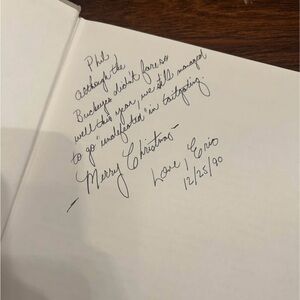 Phil
although the
Buckeyes didn't fare so
well this year, we still managed
to go "undefeated" in tailgating.
- Merry Christmas -
Love, Eric
12/25/90